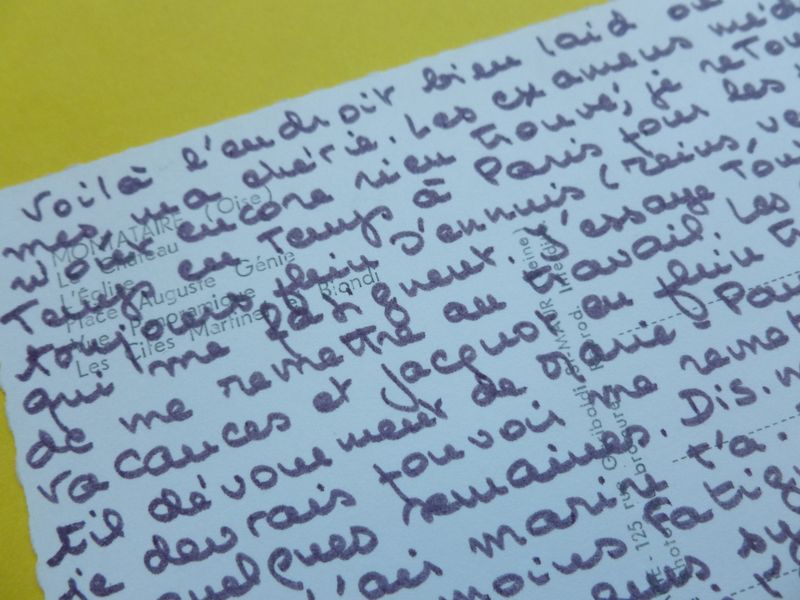 Voilà l'endroit bien laid où
mes, ma chérie. Les examens méd
n'ont encore rien trouvé, je retour
Temps en Temps à Paris pour les
toujours plein d'ennuis (reins, ve
qui me fatiguent. J'essaye Tou
de me remettre au travail. Les
vacances et Jacquot au plein
til dévouement de Marie-Pau
je devrais pouvoir me remet
quelques semaines. Dis.m
mari t'a.
moins fatigu
MONTATAIRE (Oise)
Le Château
L'Église
Place Auguste Génie
Vue Panoramique
Les Cités Martinet et Biondi
125 rue Garibaldi St-MAUR (Seine)